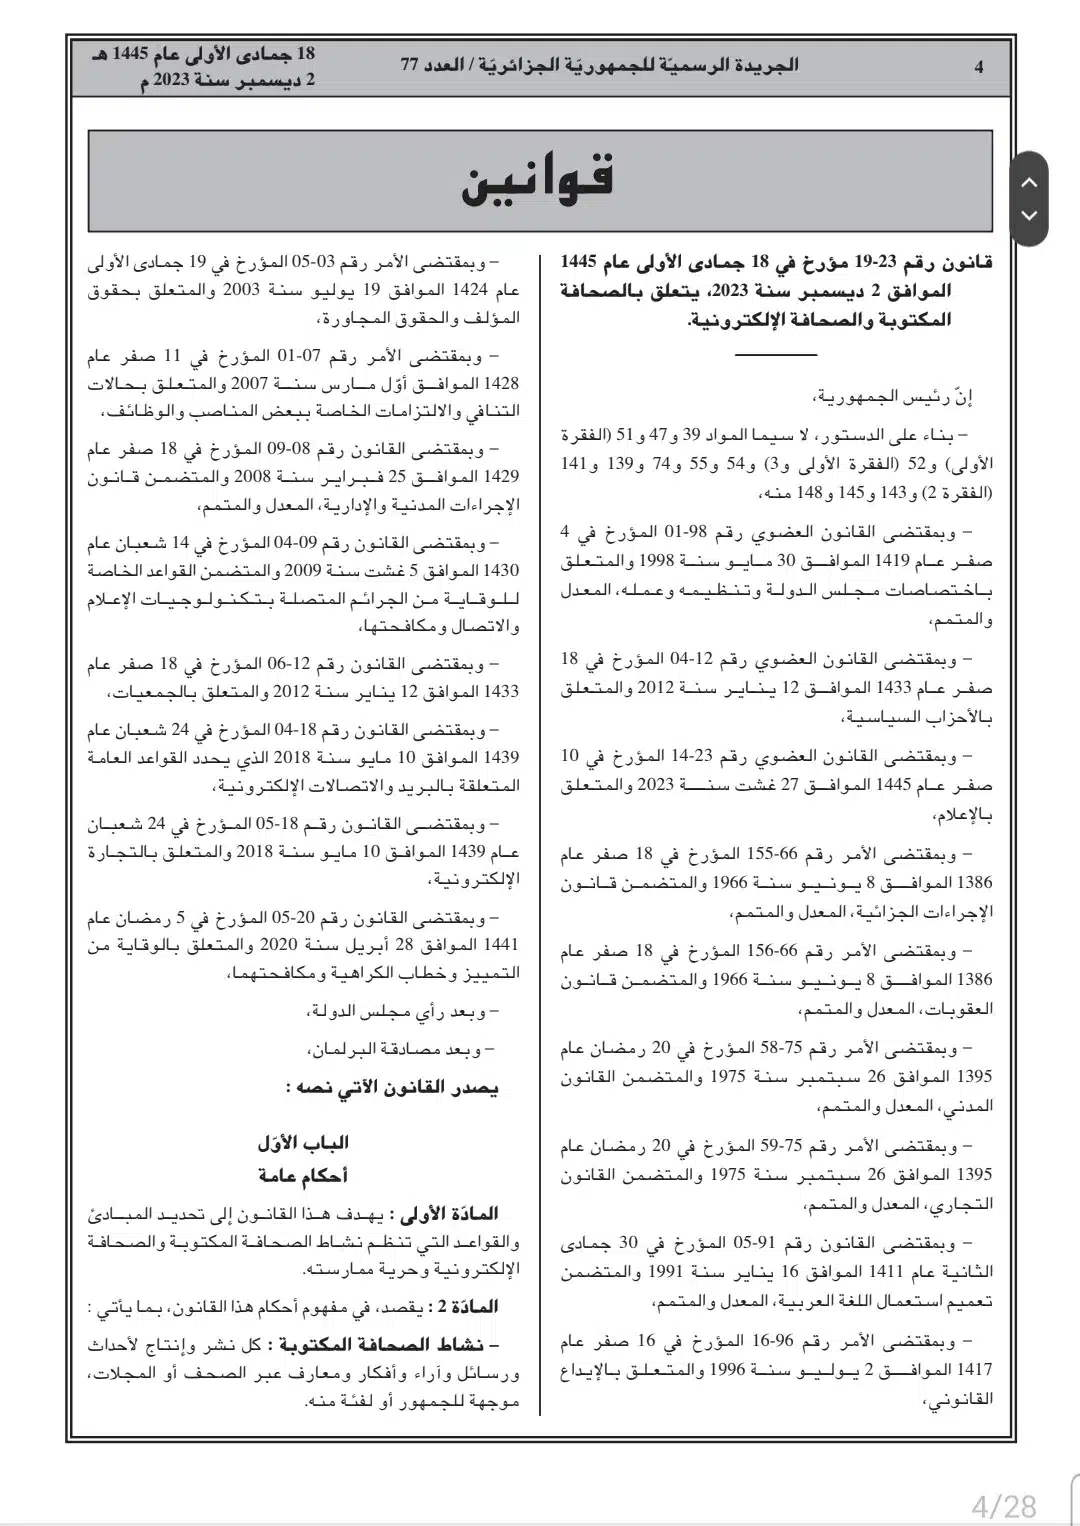 4
الجريدة الرسميّة للجمهوريّة الجزائريّة / العدد 77
18 جمادى الأولى عام 1445 هـ
2 ديسمبر سنة 2023 م
قوانين
قانون رقم 23-19 مؤرخ في 18 جمادى الأولى عام 1445
الموافق 2 ديسمبر سنة 2023، يتعلق بالصحافة
المكتوبة والصحافة الإلكترونية.
إنّ رئيس الجمهورية،
– بناء على الدستور، لا سيما المواد 39 و47 و51 (الفقرة
الأولى) و52 (الفقرة الأولى و3) و54 و55 و74 و139 و141
(الفقرة 2) و143 و145 و148 منه،
– وبمقتضى القانون العضوي رقم 98-01 المؤرخ في 4
صفر عام 1419 الموافق 30 مايو سنة 1998 والمتعلق
باختصاصات مجلس الدولة وتنظيمه وعمله، المعدل
والمتمم،
– وبمقتضى القانون العضوي رقم 12-04 المؤرخ في 18
صفر عام 1433 الموافق 12 يناير سنة 2012 والمتعلق
بالأحزاب السياسية،
– وبمقتضى القانون العضوي رقم 23-14 المؤرخ في 10
صفر عام 1445 الموافق 27 غشت سنة 2023 والمتعلق
بالإعلام،
– وبمقتضى الأمر رقم 66-155 المؤرخ في 18 صفر عام
1386 الموافق 8 يونيو سنة 1966 والمتضمن قانون
الإجراءات الجزائية، المعدل والمتمم،
– وبمقتضى الأمر رقم 66-156 المؤرخ في 18 صفر عام
1386 الموافق 8 يونيو سنة 1966 والمتضمن قانون
العقوبات، المعدل والمتمم،
– وبمقتضى الأمر رقم 75-58 المؤرخ في 20 رمضان عام
1395 الموافق 26 سبتمبر سنة 1975 والمتضمن القانون
المدني، المعدل والمتمم،
– وبمقتضى الأمر رقم 75-59 المؤرخ في 20 رمضان عام
1395 الموافق 26 سبتمبر سنة 1975 والمتضمن القانون
التجاري، المعدل والمتمم،
– وبمقتضى القانون رقم 91-05 المؤرخ في 30 جمادى
الثانية عام 1411 الموافق 16 يناير سنة 1991 والمتضمن
تعميم استعمال اللغة العربية، المعدل والمتمم،
– وبمقتضى الأمر رقم 96-16 المؤرخ في 16 صفر عام
1417 الموافق 2 يوليو سنة 1996 والمتعلق بالإيداع
القانوني،
– وبمقتضى الأمر رقم 03-05 المؤرخ في 19 جمادى الأولى
عام 1424 الموافق 19 يوليو سنة 2003 والمتعلق بحقوق
المؤلف والحقوق المجاورة،
– وبمقتضى الأمر رقم 07-01 المؤرخ في 11 صفر عام
1428 الموافق أوّل مارس سنة 2007 والمتعلق بحالات
التنافي والالتزامات الخاصة ببعض المناصب والوظائف،
– وبمقتضى القانون رقم 08-09 المؤرخ في 18 صفر عام
1429 الموافق 25 فبراير سنة 2008 والمتضمن قانون
الإجراءات المدنية والإدارية، المعدل والمتمم،
– وبمقتضى القانون رقم 09-04 المؤرخ في 14 شعبان عام
1430 الموافق 5 غشت سنة 2009 والمتضمن القواعد الخاصة
للوقاية من الجرائم المتصلة بتكنولوجيات الإعلام
والاتصال ومكافحتها،
– وبمقتضى القانون رقم 12-06 المؤرخ في 18 صفر عام
1433 الموافق 12 يناير سنة 2012 والمتعلق بالجمعيات،
– وبمقتضى القانون رقم 18-04 المؤرخ في 24 شعبان عام
1439 الموافق 10 مايو سنة 2018 الذي يحدد القواعد العامة
المتعلقة بالبريد والاتصالات الإلكترونية،
– وبمقتضى القانون رقم 18-05 المؤرخ في 24 شعبان
عام 1439 الموافق 10 مايو سنة 2018 والمتعلق بالتجارة
الإلكترونية،
– وبمقتضى القانون رقم 20-05 المؤرخ في 5 رمضان عام
1441 الموافق 28 أبريل سنة 2020 والمتعلق بالوقاية من
التمييز وخطاب الكراهية ومكافحتهما،
– وبعد رأي مجلس الدولة،
– وبعد مصادقة البرلمان،
يصدر القانون الآتي نصه :
الباب الأوّل
أحكام عامة
المادّة الأولى : يهدف هذا القانون إلى تحديد المبادئ
والقواعد التي تنظم نشاط الصحافة المكتوبة والصحافة
الإلكترونية وحرية ممارسته.
المادّة 2 : يقصد، في مفهوم أحكام هذا القانون، بما يأتي :
– نشاط الصحافة المكتوبة : كل نشر وإنتاج لأحداث
ورسائل وآراء وأفكار ومعارف عبر الصحف أو المجلات،
موجهة للجمهور أو لفئة منه.
4/28